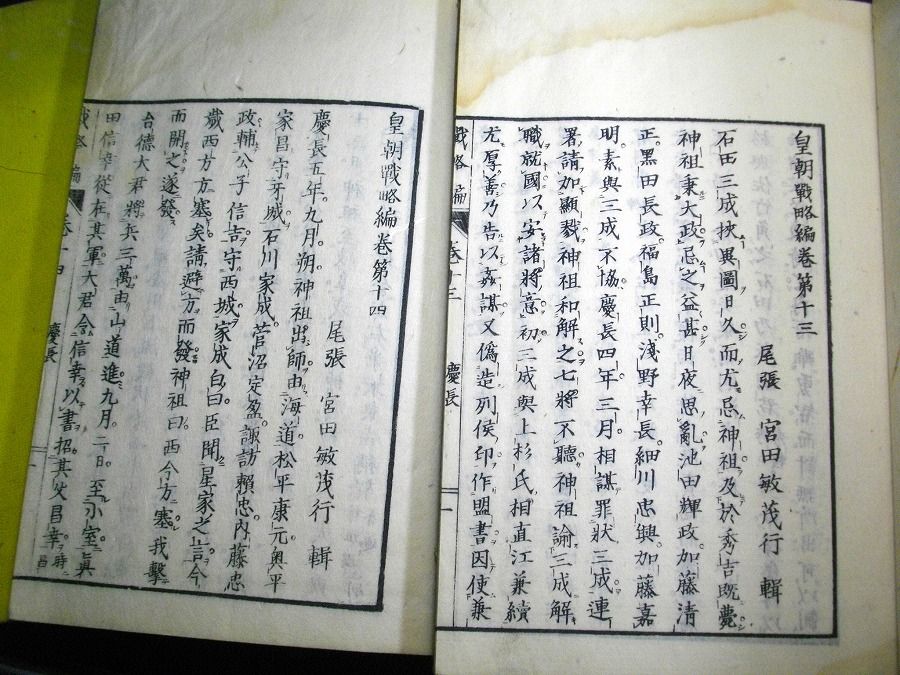 皇朝戰略編卷第十三
尾張 宮田敏茂行 輯
石田三成挾異圖日久而尤忌神祖及於秀吉既薨
神祖秉大政忌之益甚日夜思亂池田輝政加藤清
正黑田長政福島正則淺野幸長細川忠興加藤嘉
明素與三成不協慶長四年三月相謀罪狀三成連
署請加顯戮神祖和解之七將不聽神祖諭三成解
職就國以安諸將意初三成與上杉氏相直江兼續
尤厚善乃告以姦謀又僞造列侯印作盟書因使兼
戰略編 卷十三 慶長 一
皇朝戰略編卷第十四
尾張 宮田敏茂行 輯
慶長五年九月朔神祖出師由海道松平康元奧平
家昌守牙城石川家成菅沼定盈諏訪賴忠內藤忠
政輔公子信吉守西城家成白曰臣聞星家之言今
歲西方方塞矣請避方而發神祖曰西今方塞我擊
而開之遂發
台德大君將兵三萬由山道進九月二日至小室眞
田信幸從在其軍大君令信幸以書招其父昌幸時
戰略編 卷十四 慶長 一